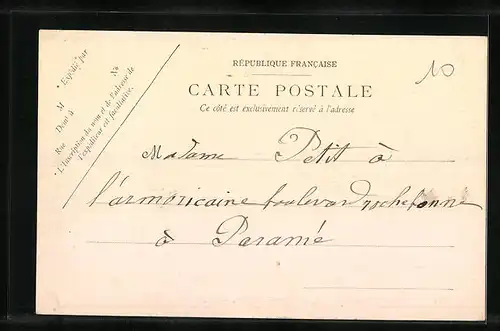 Expédié par
M
Demt à
Rue Nº
L'Inscription du nom et de l'adresse de
l'expéditeur est facultative.
RÉPUBLIQUE FRANÇAISE
CARTE POSTALE
Ce côté est exclusivement réservé à l'adresse
10
Madame Petit à
l'armoricaine boulevard rochebonne
à Paramé